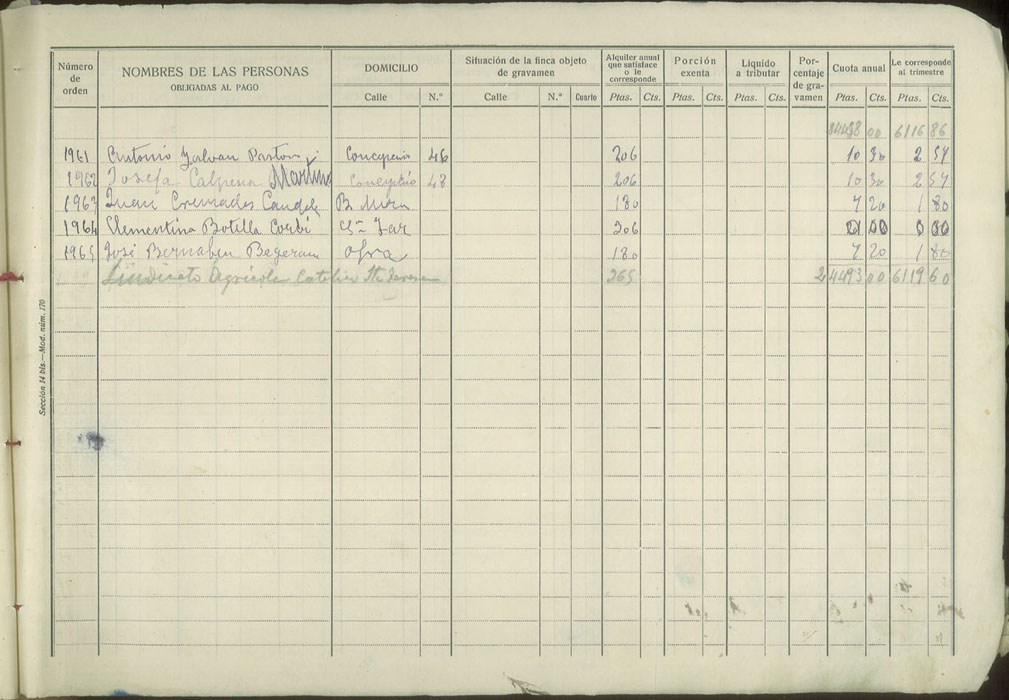 Número de orden | NOMBRES DE LAS PERSONAS OBLIGADAS AL PAGO | DOMICILIO | Situación de la finca objeto de gravamen | Alquiler anual que satisface o le corresponde | Porción exenta | Líquido a tributar | Porcentaje de gravamen | Cuota anual | Le corresponde al trimestre
Calle | N.º | Calle | N.º | Cuarto | Ptas. | Cts. | Ptas. | Cts. | Ptas. | Cts. | Ptas. | Cts. | Ptas. | Cts.
00 6116 86
1961 Antonio Galvan Pastor Concepción 46 206 10 30 2 57
1962 Josefa Calpena Martin Concepción 48 206 10 30 2 57
1963 Juan Cremades Candela 180 7 20 1 80
1964 Clementina Botella Corbi 206
1965 José Bernabeu 180 7 20 1 80
Sindicato Agricola Catolico 265 24493 00 6119 60
Sección 14 bis.—Mod. núm. 170